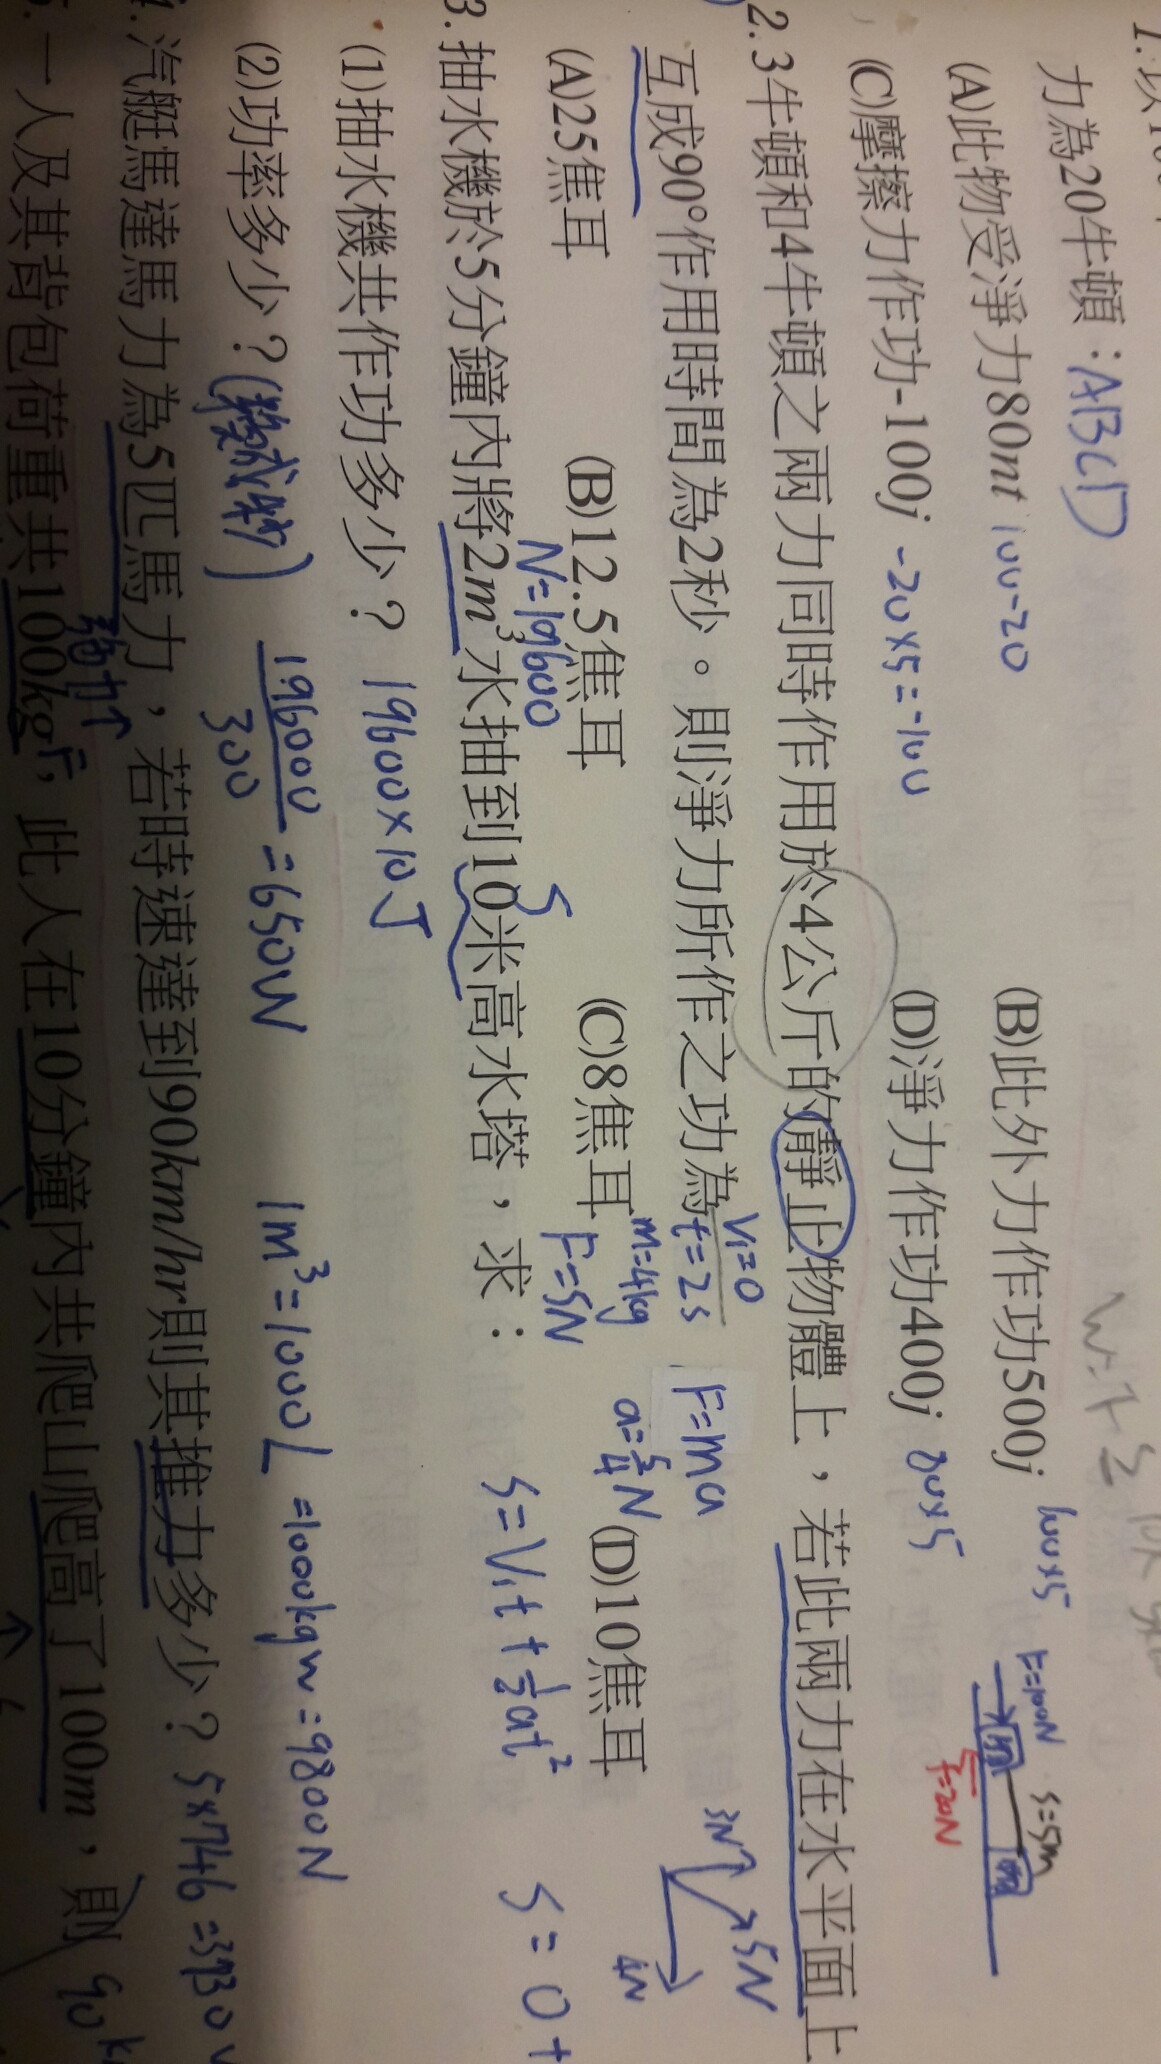 1.以10
力為20牛頓：ABCD
(A)此物受淨力80nt 100-20 (B)此外力作功500j 100×5
(C)摩擦力作功-100j -20×5=-100 (D)淨力作功400j 80×5
F=100N S=5m
f=20N
2.3牛頓和4牛頓之兩力同時作用於4公斤的靜止物體上，若此兩力在水平面上
互成90°作用時間為2秒。則淨力所作之功為
V1=0
t=2s
m=4kg
F=5N
F=ma
a=5/4N
3N 5N
4N
(A)25焦耳 (B)12.5焦耳 (C)8焦耳 (D)10焦耳
N=19600 S
S=V1t+1/2at²
S=0+
3.抽水機於5分鐘內將2m³水抽到10米高水塔，求：
(1)抽水機共作功多少？ 19600×10J
(2)功率多少？ 196000/300=650W
1m³=1000L=1000kgw=9800N
4.汽艇馬達馬力為5匹馬力，若時速達到90km/hr則其推力多少？ 5×746=3730
5.一人及其背包荷重共100kg，此人在10分鐘內共爬山爬高了100m，則
90k